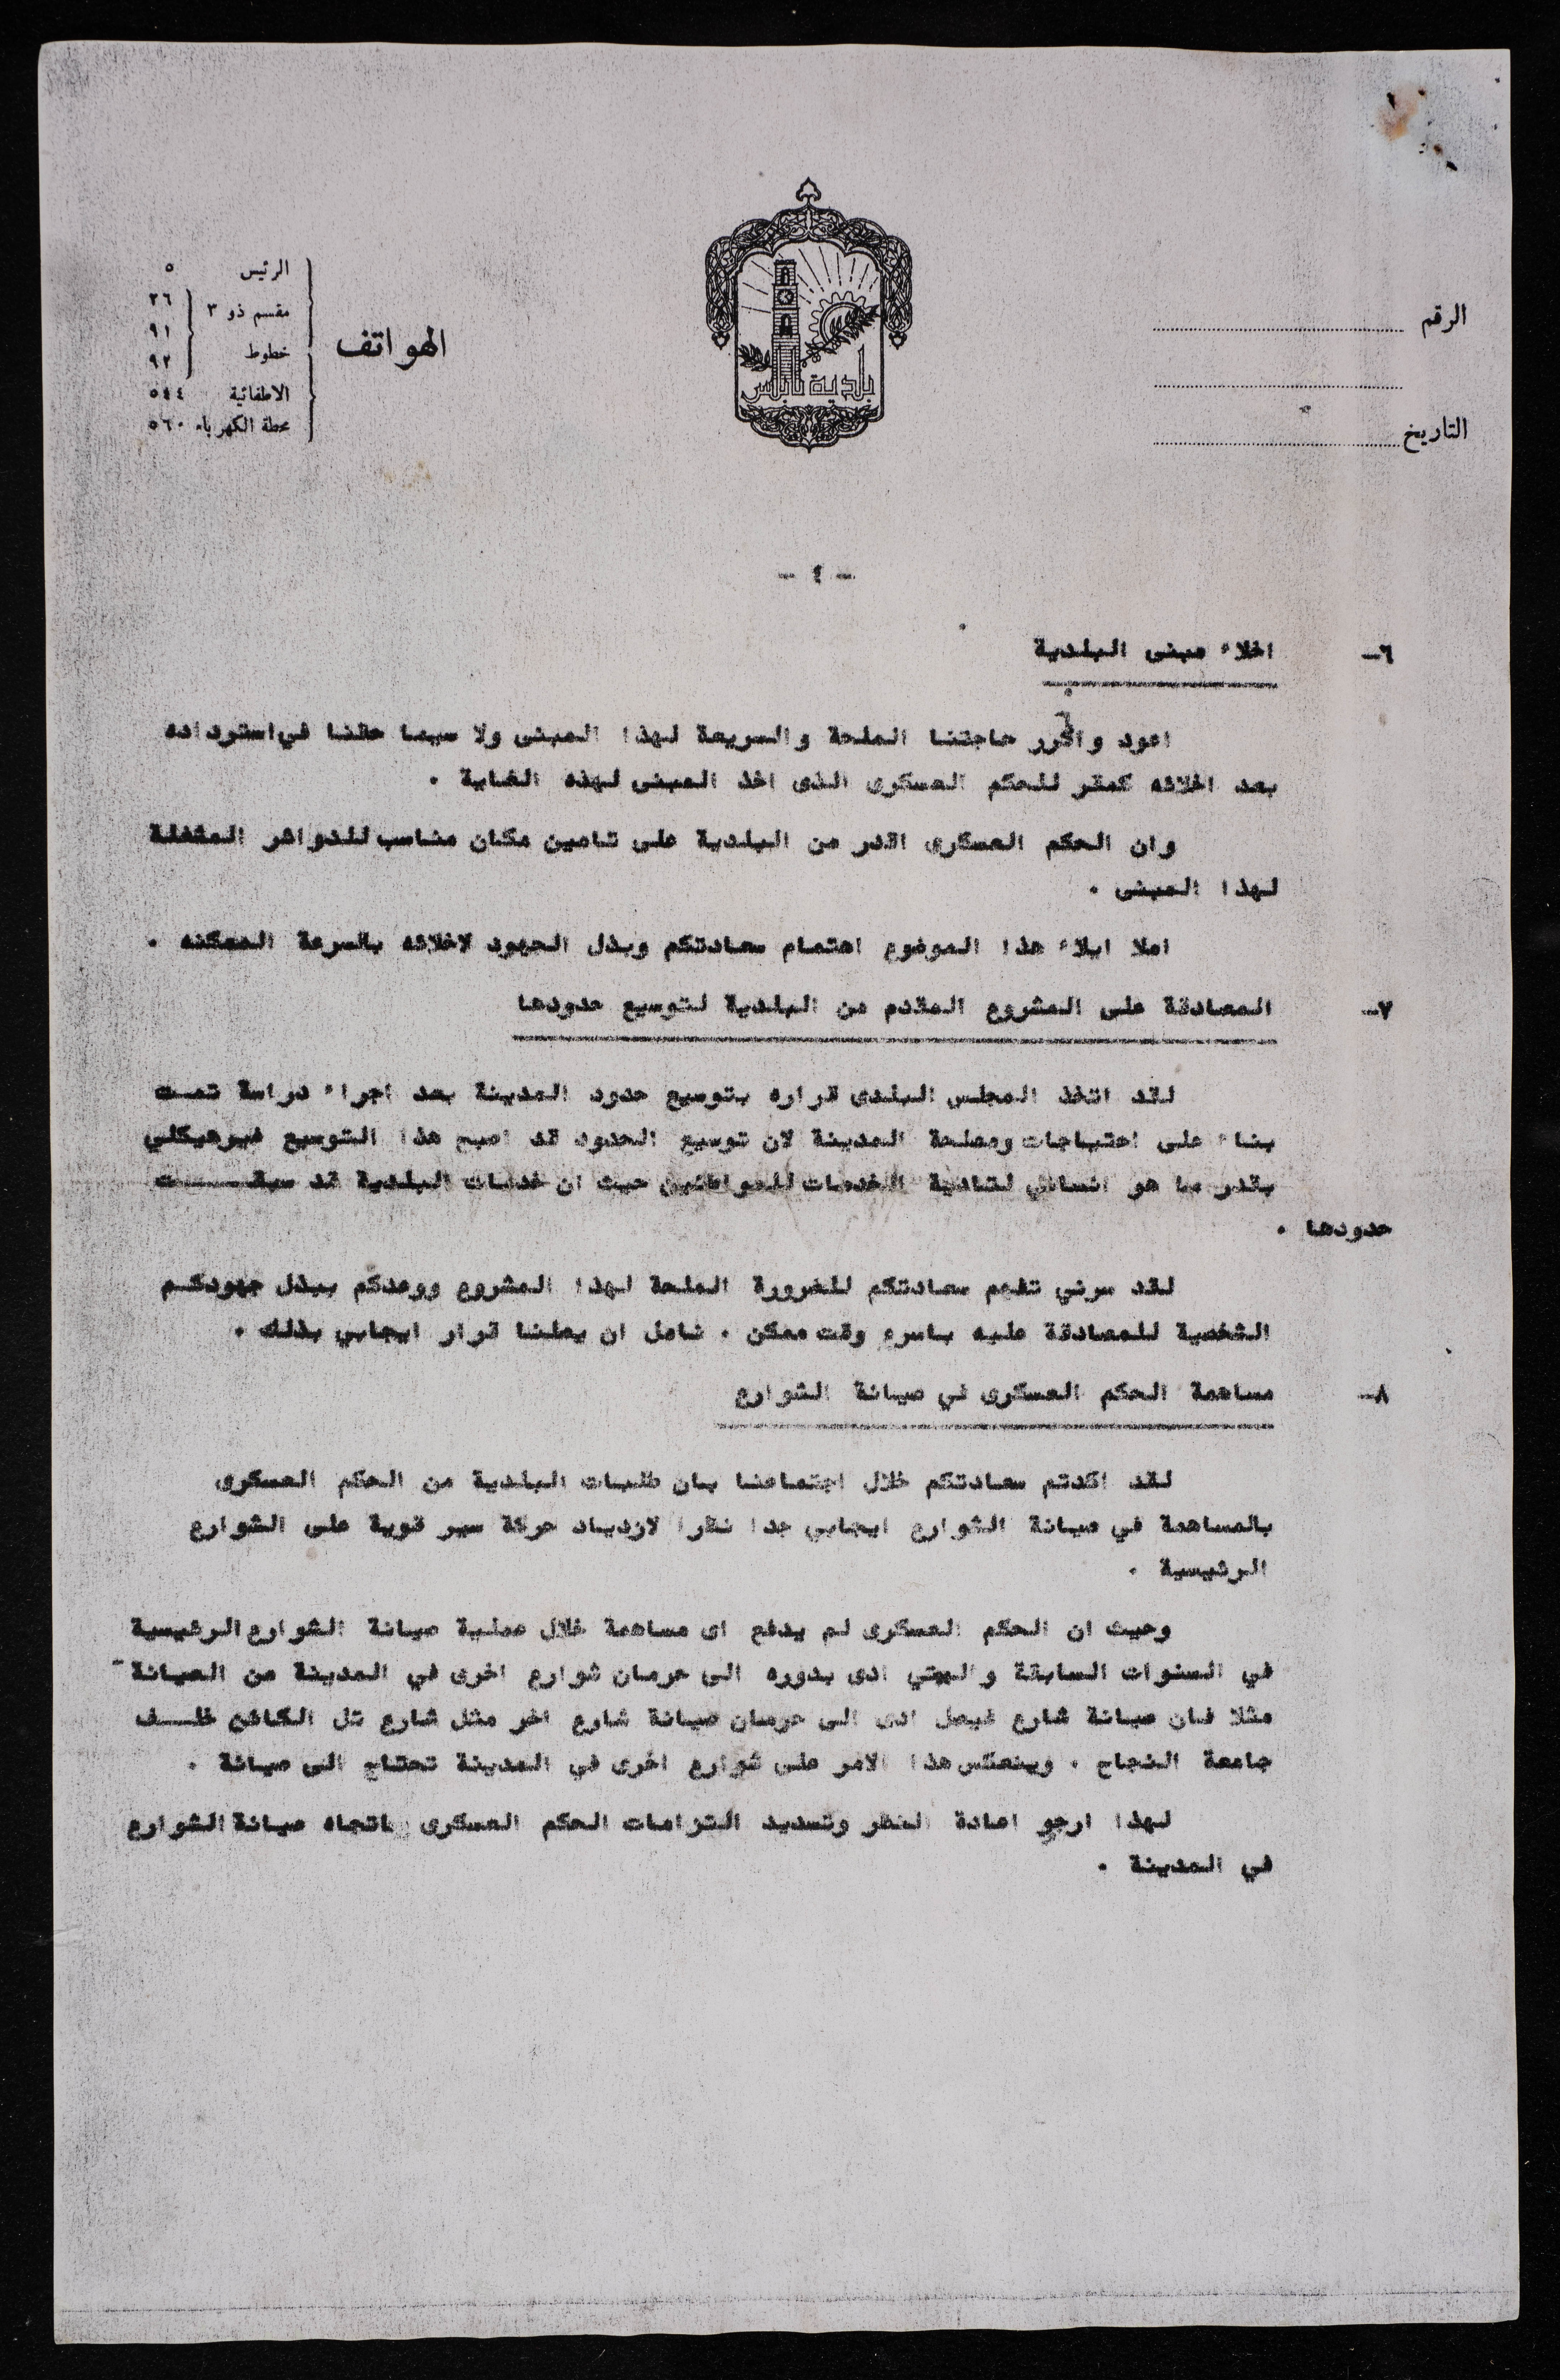 الرقم
التاريخ
بلدية نابلس
الهواتف
الرئيس ٥
مقسم ذو ٣ خطوط ٢٦ ٩١ ٩٢
الاطفائية ٥٤٤
محطة الكهرباء ٥٦٠
- ٤ -
٦- اخلاء مبنى البلدية
اعود واكرر حاجتنا الملحة والسريعة لهذا المبنى ولا سيما حقنا في استرداده
بعد اخلائه كمقر للحكم العسكرى الذى اخذ المبنى لهذه الغاية .
وان الحكم العسكرى اقدر من البلدية على تامين مكان مناسب للدوائر المشغلة
لهذا المبنى .
املا ايلاء هذا الموضوع اهتمام سعادتكم وبذل الجهود لاخلائه بالسرعة الممكنه .
٧- المصادقة على المشروع المقدم من البلدية لتوسيع حدودها
لقد اتخذ المجلس البلدى قراره بتوسيع حدود المدينة بعد اجراء دراسة تمت
بناء على احتياجات ومصلحة المدينة لان توسيع الحدود قد اصبح هذا التوسيع غيرهيكلي
بقدر ما هو انساني لتادية الخدمات للمواطنين حيث ان خدمات البلدية قد سبقــــت
حدودها .
لقد سرني تفهم سعادتكم للضرورة الملحة لهذا المشروع ووعدكم ببذل جهودكم
الشخصية للمصادقة عليه باسرع وقت ممكن . نامل ان يصلنا قرار ايجابي بذلك .
٨- مساهمة الحكم العسكرى في صيانة الشوارع
لقد اكدتم سعادتكم خلال اجتماعنا بان طلبات البلدية من الحكم العسكرى
بالمساهمة في صيانة الشوارع ايجابي جدا نظرا لازدياد حركة سير قوية على الشوارع
الرئيسية .
وحيث ان الحكم العسكرى لم يدفع اى مساهمة خلال عملية صيانة الشوارع الرئيسية
في السنوات السابقة ادى بدوره الى حرمان شوارع اخرى في المدينة من الصيانة
مثلا فان صيانة شارع فيصل ادى الى حرمان صيانة شارع اخر مثل شارع خلــف
جامعة النجاح . وينعكس هذا الامر على شوارع اخرى في المدينة تحتاج الى صيانة .
لهذا ارجو اعادة النظر وتسديد التزامات الحكم العسكرى باتجاه صيانة الشوارع
في المدينة .